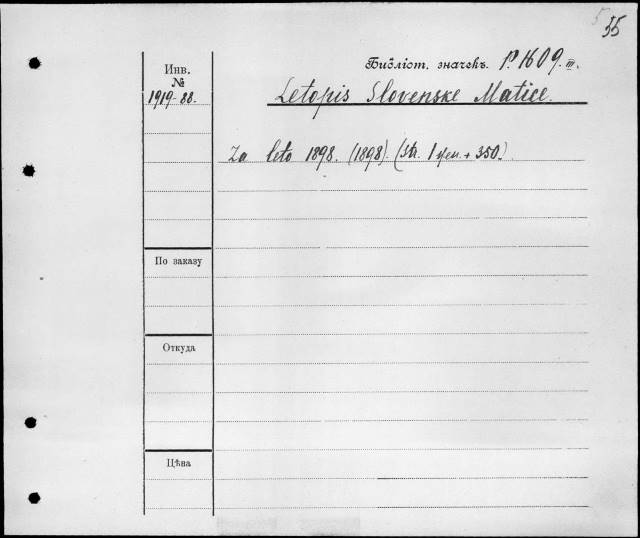 55
Библіот. значекъ. P 1609. III.
Инв.
№
1919-88.
Letopis Slovenske Matice.
Za leto 1898. (1898). (Str. 1 + 350.)
По заказу
Откуда
Цѣна